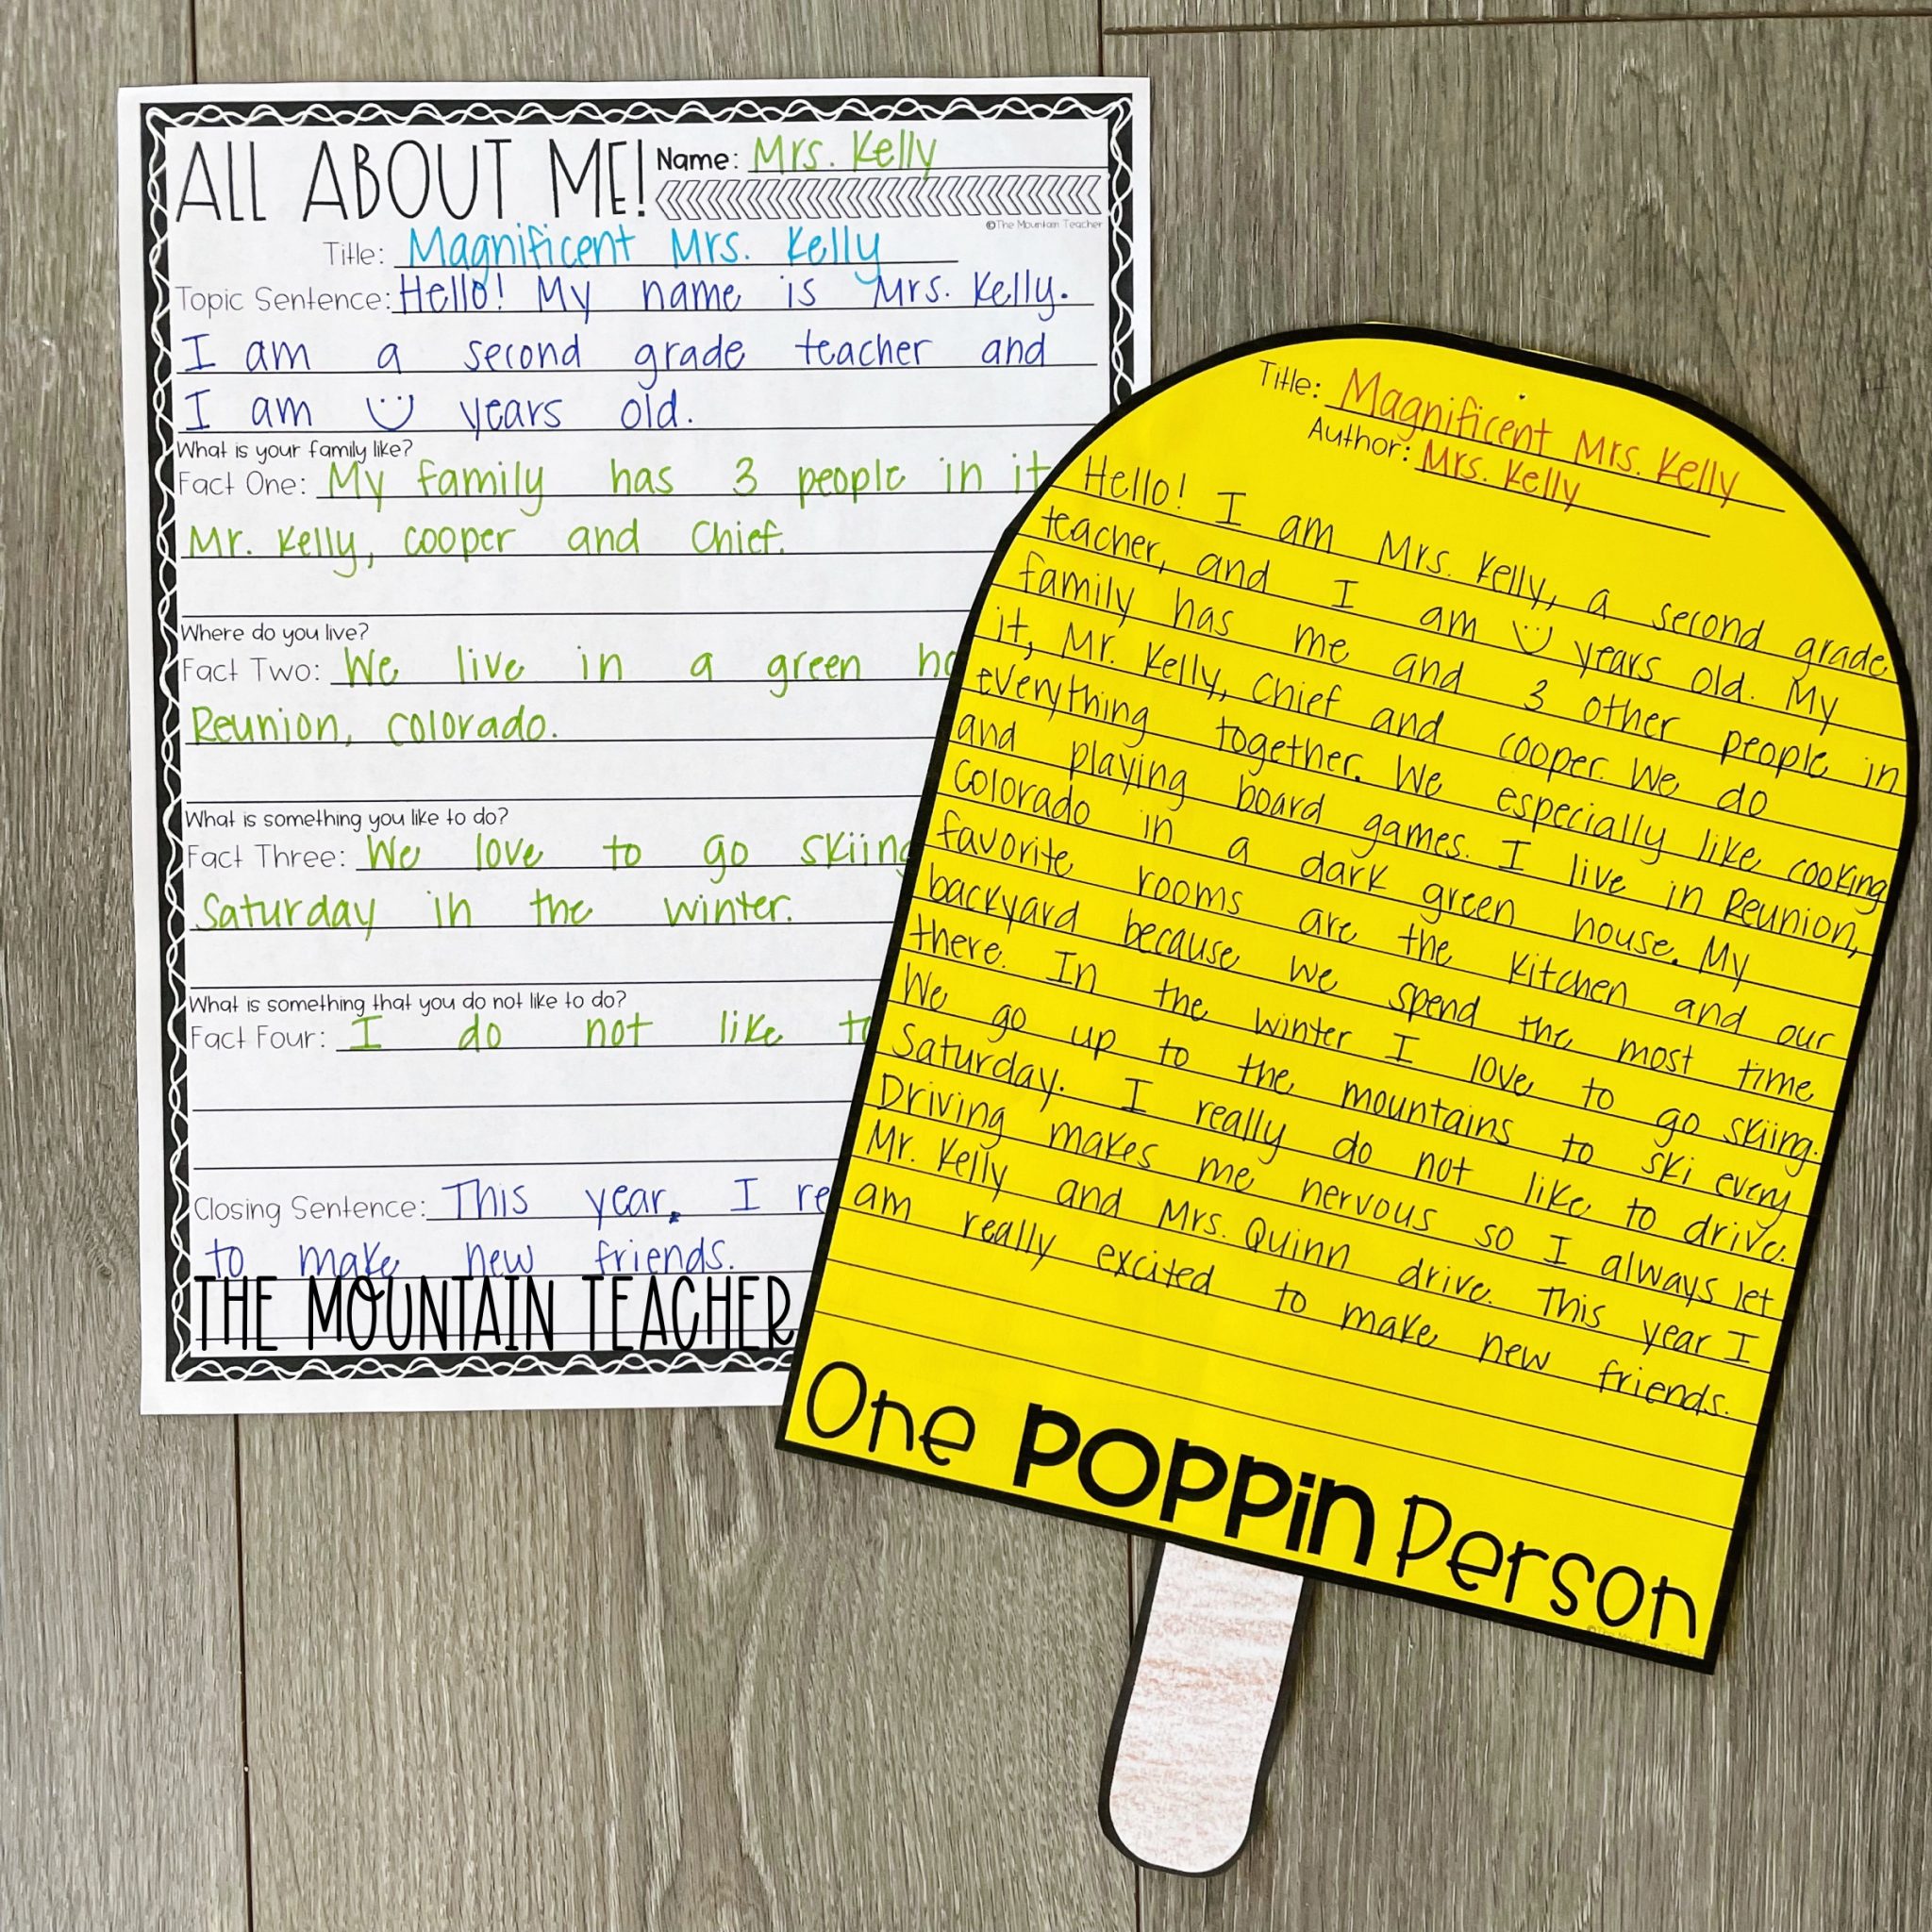 ALL ABOUT ME!
Name: Mrs. Kelly
©The Mountain Teacher
Title: Magnificent Mrs. Kelly
Topic Sentence: Hello! My name is Mrs. Kelly.
I am a second grade teacher and
I am years old.
What is your family like?
Fact One: My family has 3 people in it
Mr. Kelly, cooper and Chief.
Where do you live?
Fact Two: We live in a green
Reunion, colorado.
What is something you like to do?
Fact Three: We love to go skiing
Saturday in the winter.
What is something that you do not like to do?
Fact Four: I do not like
Closing Sentence: This year, I
to make new friends.
THE MOUNTAIN TEACHER
Title: Magnificent Mrs. Kelly
Author: Mrs. Kelly
Hello! I am Mrs. Kelly, a second grade
teacher, and I am years old. My
family has me and 3 other people in
it, Mr. Kelly, Chief and cooper. We do
everything together. We especially like cooking
and playing board games. I live in Reunion,
Colorado in a dark green house. My
favorite rooms are the kitchen and our
backyard because we spend the most time
there. In the winter I love to go skiing.
We go up to the mountains to ski every
Saturday. I really do not like to drive.
Driving makes me nervous so I always let
Mr. Kelly and Mrs. Quinn drive. This year I
am really excited to make new friends.
One POPPin Person